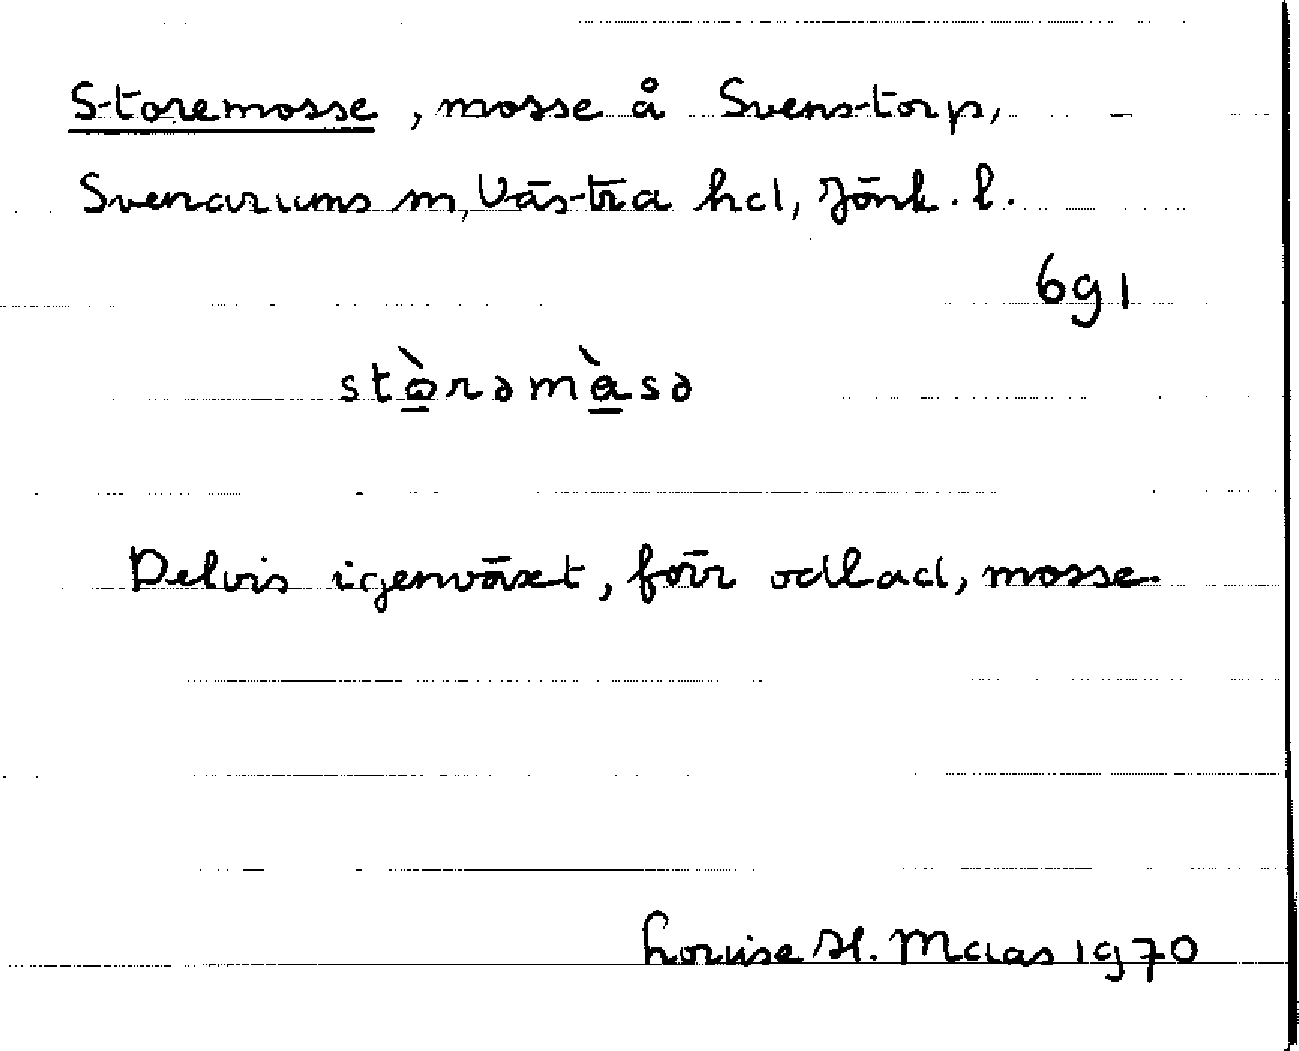 Storemosse, mosse å Svenstorp,
Svenarums sn, Västra hd, Jönk. l.
6g1
stòrəmàsə
Delvis igenväxt, förr odlad, mosse.
Louise H. Maas 1970